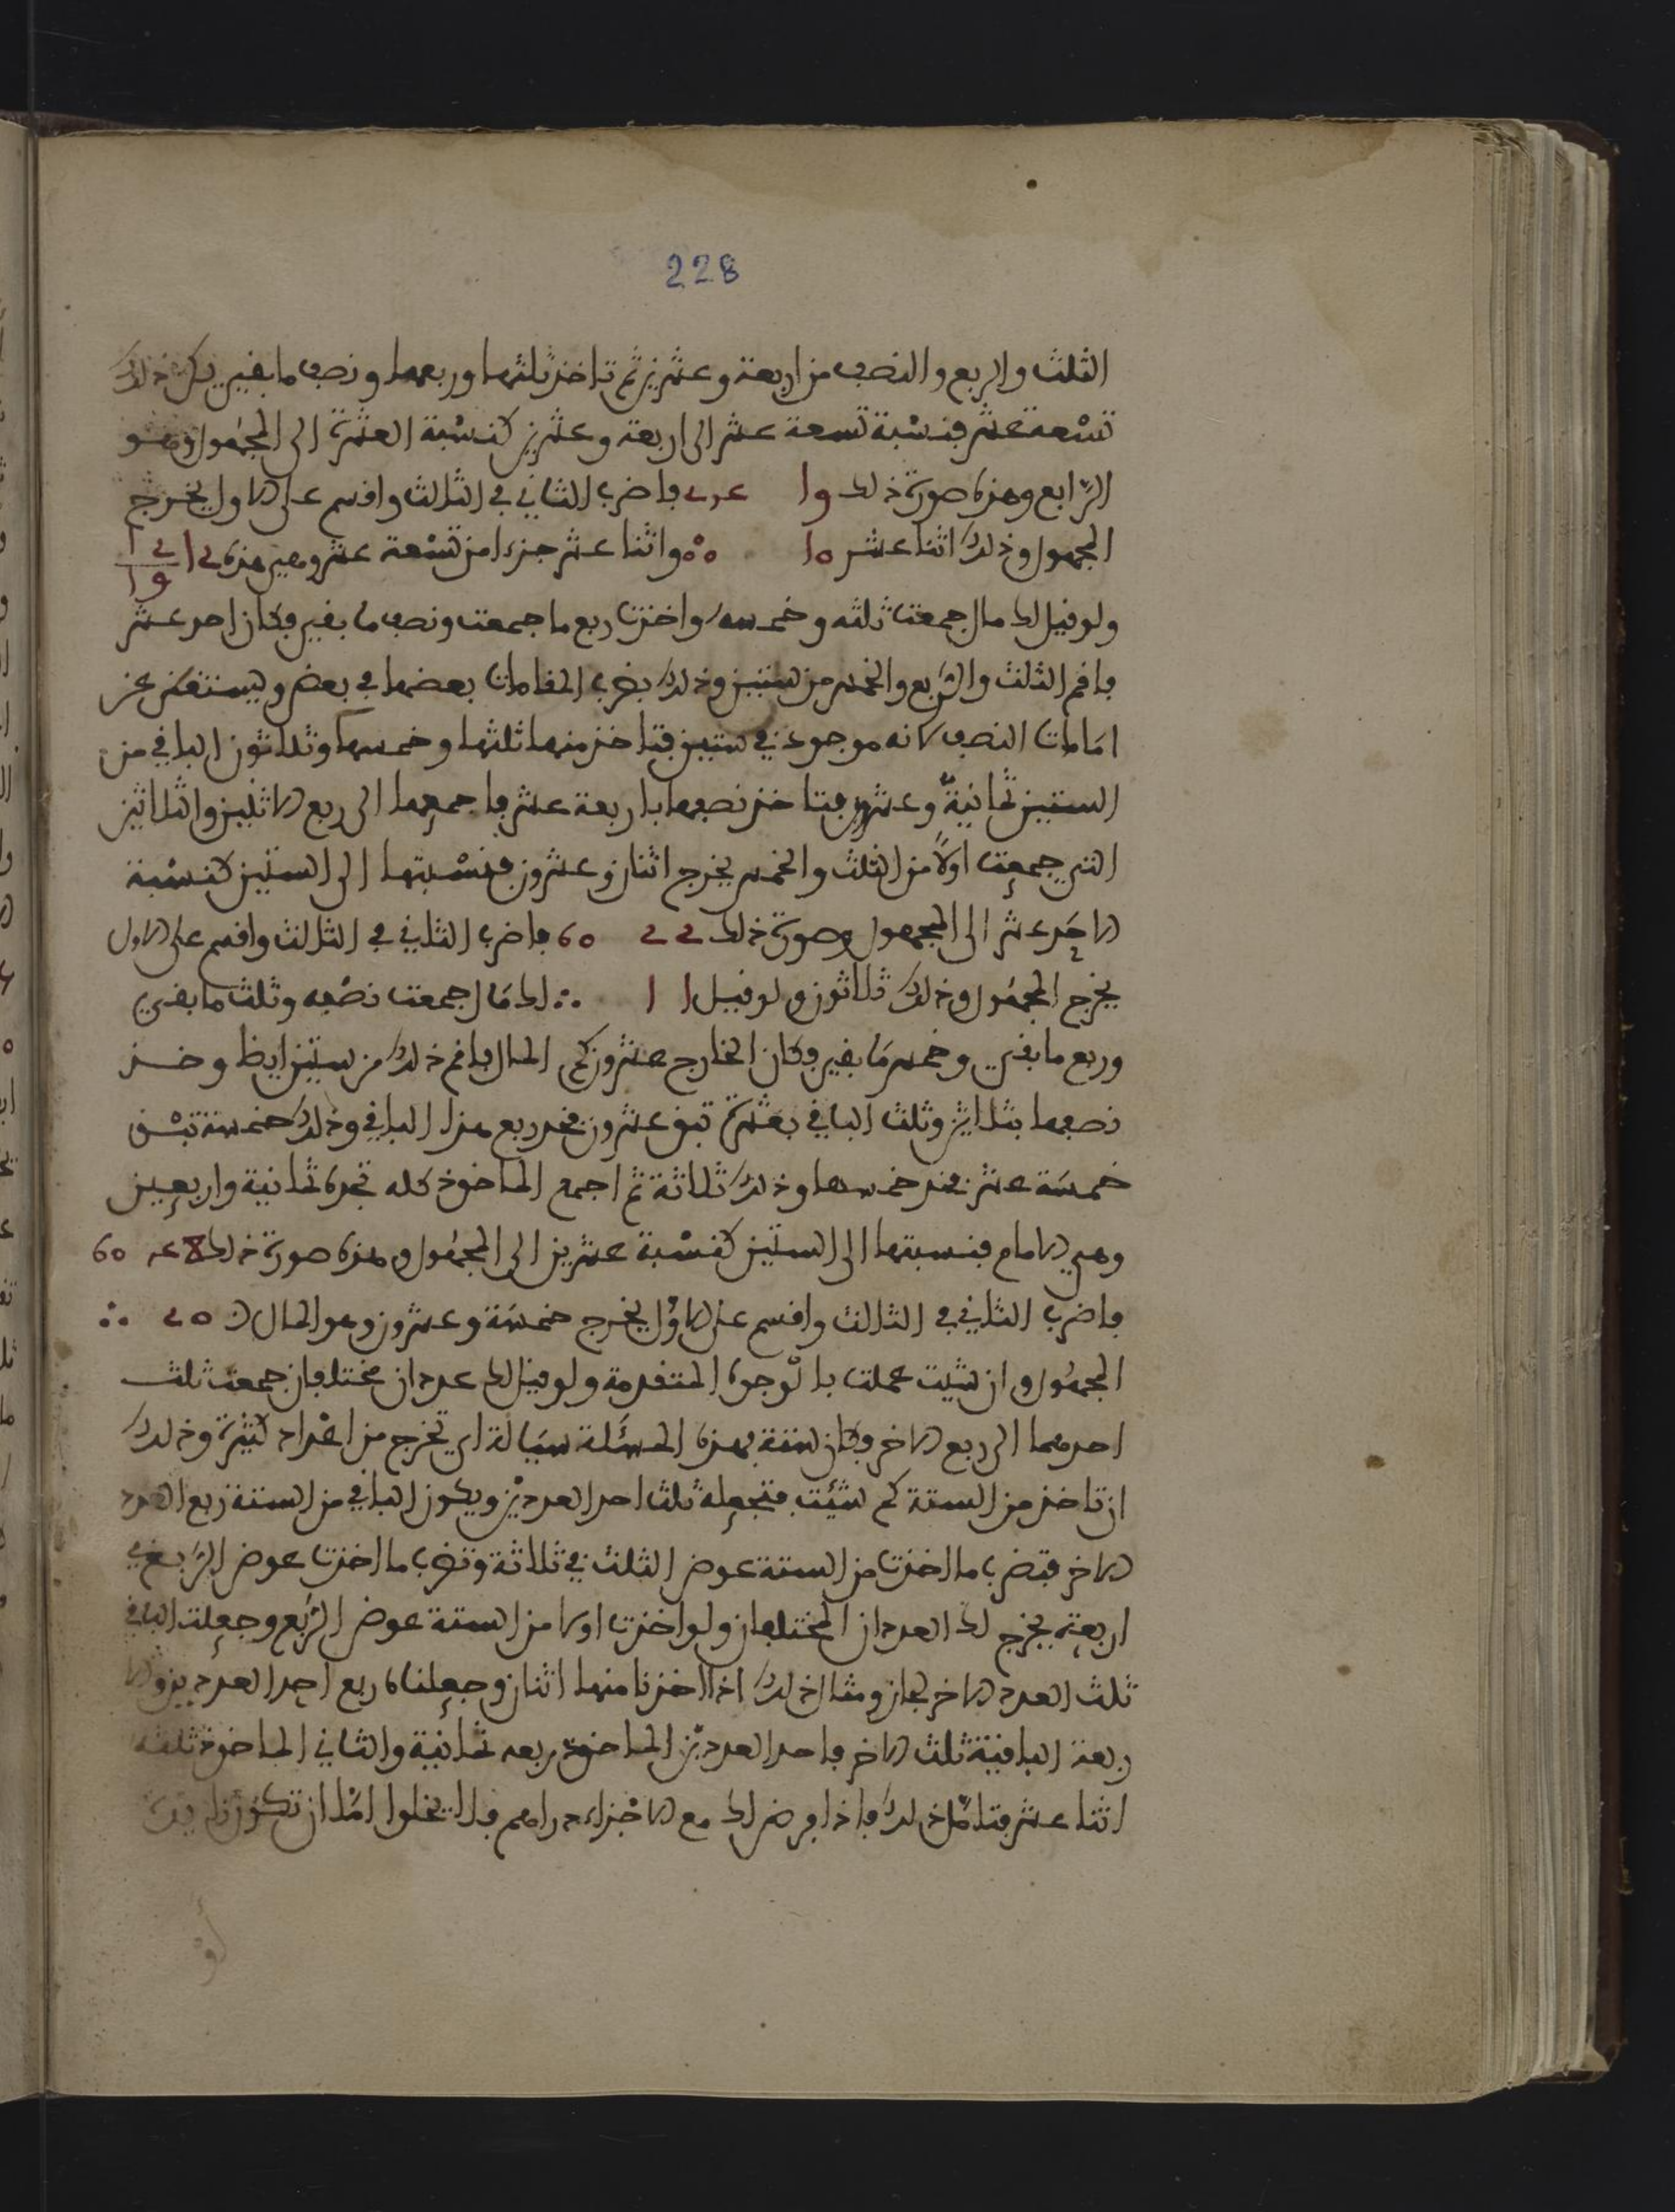 228
الثلث والربع والنصف من اربعة وعشرين ثم تاخذ ثلثها وربعها ونصف ما بقي يكن ذلك
تسعة عشر فنسبة تسعة عشر الى اربعة وعشرين كنسبة العشرة الى المجهول وهو
الرابع وهذه صورة ذلك 19 24 فاضرب الثاني في الثالث واقسم على الاول يخرج
المجهول وذلك اثنا عشر 10 ∴ واثنا عشر جزءا من تسعة عشر وهي هذه 12 12/19
ولو قيل لك مال جمعت ثلثه وخمسه واخذت ربع ما جمعت ونصف ما بقي فكان احد عشر
فاقم الثلث والربع والخمس من ستين وذلك بضرب المقامات بعضها في بعض ويستغنى عن
امامات النصف لانه موجود في ستين فتاخذ منها ثلثها وخمسها وثلاثون الباقي من
الستين ثمانية وعشرون فتاخذ نصفها باربعة عشر فاجمعها الى ربع الاثنين والثلاثين
التي جمعت اولا من الثلث والخمس يخرج اثنان وعشرون فنسبتها الى الستين كنسبة
الاحد عشر الى المجهول وصورة ذلك 22 60 فاضرب الثاني في الثالث واقسم على الاول
يخرج المجهول وذلك ثلاثون ولو قيل 11 ∴ لك مال جمعت نصفه وثلث ما بقي
وربع ما بقي وخمس ما بقي وكان الخارج عشرون كم المال فاقم ذلك من ستين ايظا وخذ
نصفها بثلاثين وثلث الباقي بعشرة تبق عشرون فخذ ربع هذا الباقي وذلك خمسة تبق
خمسة عشر فخذ خمسها وذلك ثلاثة ثم اجمع الماخوذ كله تجده ثمانية واربعين
وهي الامام فنسبتها الى الستين كنسبة عشرين الى المجهول وهذه صورة ذلك 48 60
فاضرب الثاني في الثالث واقسم على الاول يخرج خمسة وعشرون وهو المال 20 ∴
المجهول وان شيت عملت بالوجوه المتقدمة ولو قيل لك عددان مختلفان جمعت ثلث
احدهما الى ربع الاخر وكان ستة بهذه المسئلة سيالة اي تخرج من اعداد كثيرة وذلك
ان تاخذ من الستة كم شئت فتجعله ثلث احد العددين ويكون الباقي من الستة ربع العدد
الاخر فتضرب ما اخذت من الستة عوض الثلث في ثلاثة وتضرب ما اخذت عوض الربع في
اربعة يخرج لك العددان المختلفان ولو اخذت اولا من الستة عوض الربع وجعلت الباقي
ثلث العدد الاخر لجاز ومثال ذلك اذا اخذنا منها اثنان وجعلناه ربع احد العددين والا
ربعة الباقية ثلث الاخر فاحد العددين الماخوذ ربعه ثمانية والثاني الماخوذ ثلثه
اثنا عشر فتامل ذلك فاذا فرض لك مع الاجزاء دراهم فلا يخلوا اما ان تكون زايدة
او